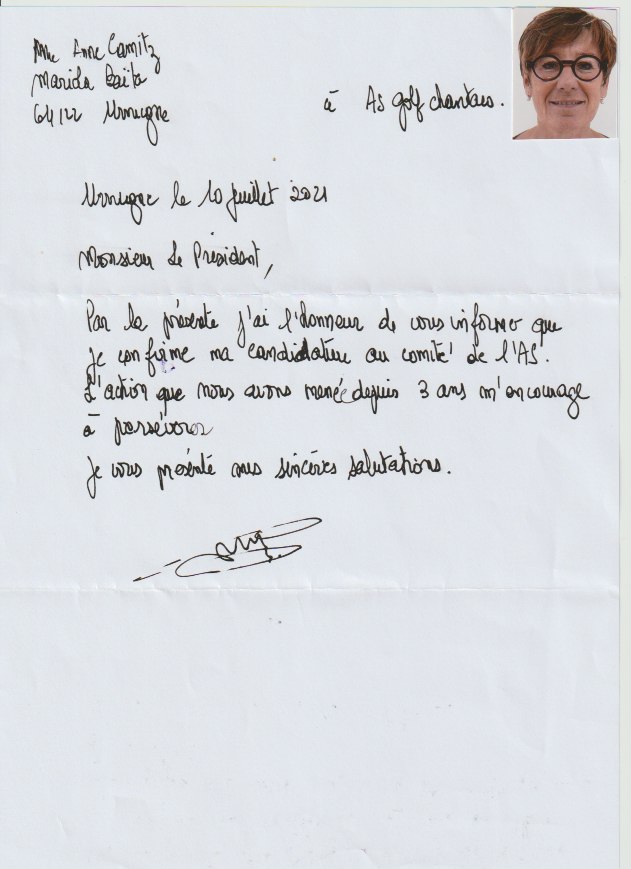 Mme Anne Camitz
Marida Baita
64122 Urrugne
à AS golf chantaco.
Urrugne le 10 juillet 2021
Monsieur le Président,
Par la présente j'ai l'honneur de vous informer que
je confirme ma candidature au comité de l'AS.
L'action que nous avons menée depuis 3 ans m'encourage
à persévérer
Je vous présente mes sincères salutations.